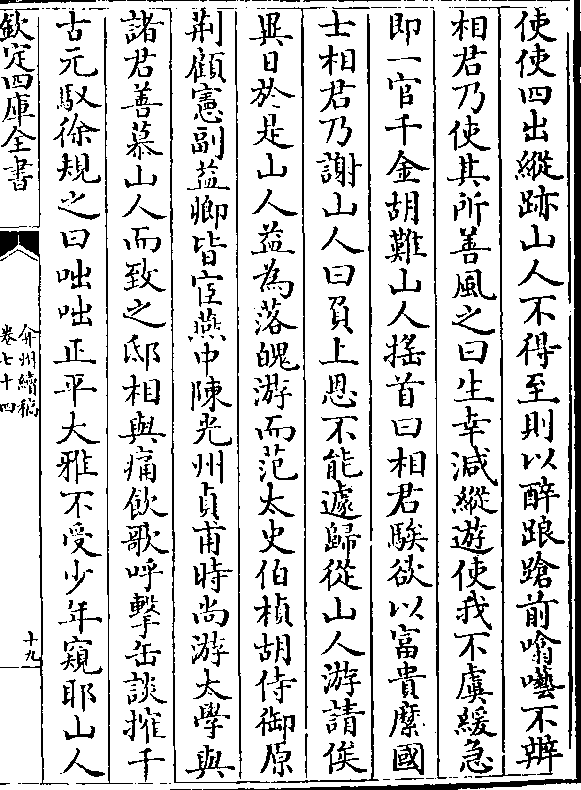 使使四出縱跡山人不得至則以醉踉蹌前噏囈不辦
相君乃使其所善風之曰生幸減縱遊使我不虞緩急
即一官千金胡難山人搖首曰相君騃欲以富貴縻國
士相君乃謝山人曰負上恩不能遽歸從山人游請俟
異日於是山人益為落魄游而范太史伯楨胡侍御原
荆顧憲副益卿皆宦燕中陳光州貞甫時尚游太學與
諸君善慕山人而致之邸相與痛飲歌呼擊缶談摧千
古元馭徐規之曰咄咄正平大雅不受少年窺耶山人
欽定四庫全書
弇州續稿
卷七十四
十九